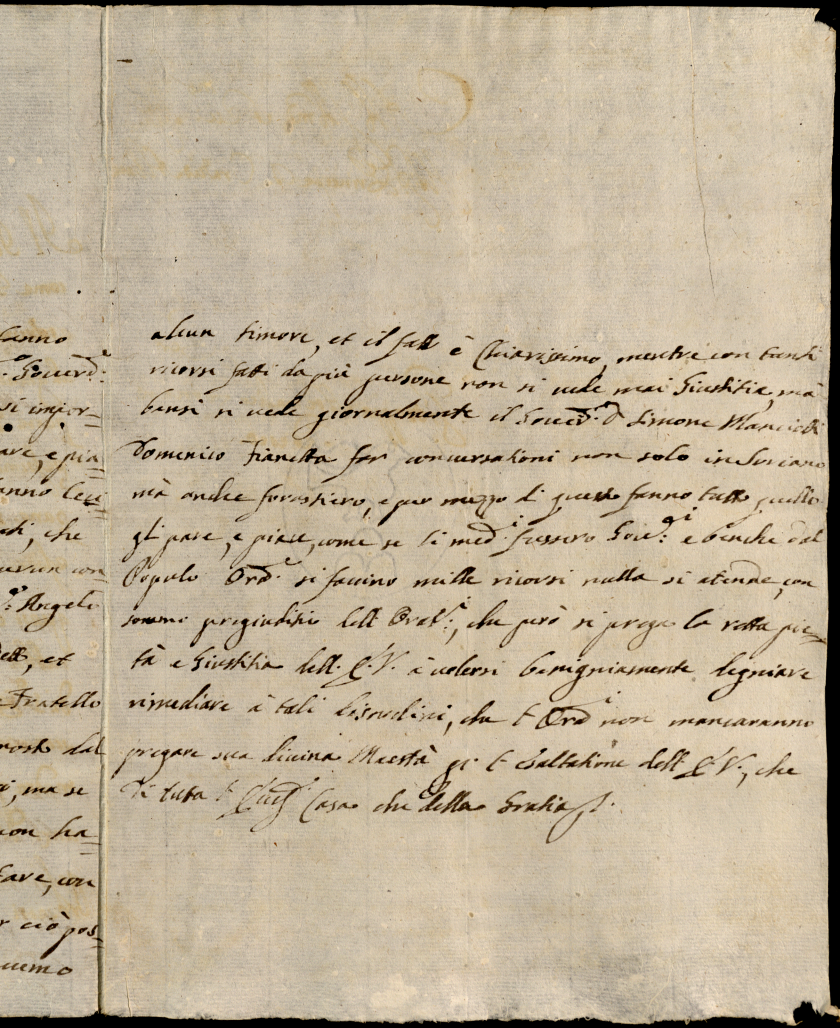 fanno
Gover.
si impor=
are, e pia=
anno leci=
che
con=
Angelo
et
e Fratello
dal
ma se
non ha=
fare, con
r ciò pos=
uemo
alcun timore, et il fatto è Chiarissimo, mentre con tanti
ricorsi fatti da più persone non si vede mai Giustitia, mà
bensì si vede giornalmente il Gover.re Simone
Domenico Fianetta far conversationi non solo in Soriano
mà anche forastiero, e per mezzo di questo fanno tutto quello
gli pare, e piace, come se li med.i fussero Gov.ri e benche dal
Popolo Ord.e si faccino mille ricorsi nulla si atende, con
sommo pregiuditio dell Orat.i, che però si prega la retta pie=
tà e Giustitia dell' E.V. à volersi benigniamente degniare
rimediare à tali disordini, che l'Ord.i non mancaranno
pregare sua divina Maestà p. l'esaltatione dell' E.V., che
di tuta l' Casa che della Gratia